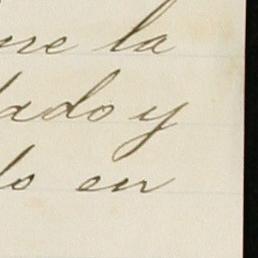 ne la
ado y
lo en